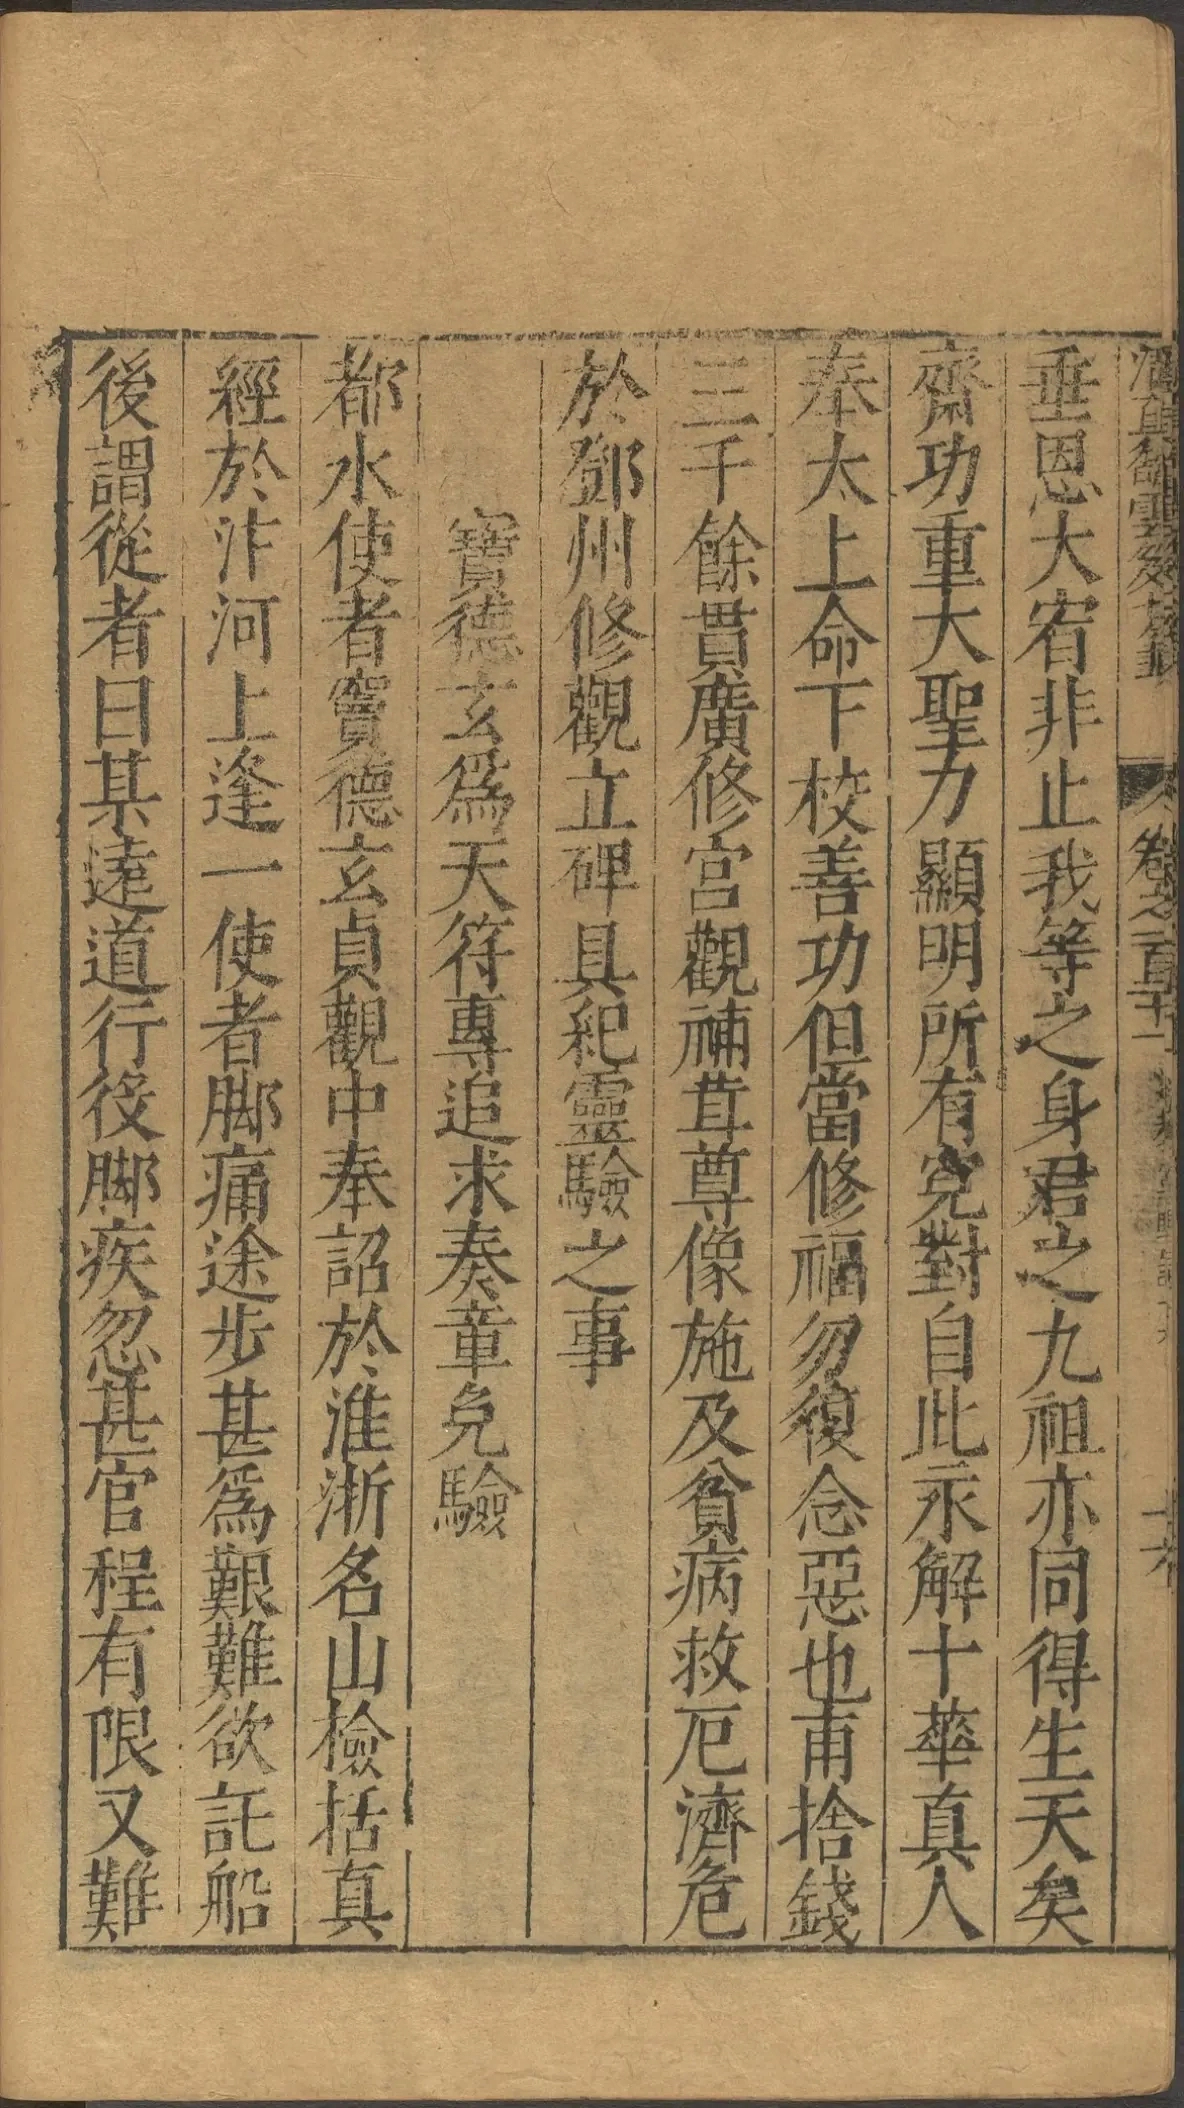 卷之一百二十一
垂恩大宥非止我等之身君之九祖亦同得生天矣
齋功重大聖力顯明所有寃對自此永解十華真人
奉太上命下校善功但當修福勿復念惡也甫捨錢
三千餘貫廣修宮觀補葺尊像施及貧病救厄濟危
於鄧州修觀立碑具紀靈驗之事
寶德玄為天符專追求奏章免驗
都水使者竇德玄貞觀中奉詔於淮浙名山檢括真
經於汴河上逢一使者脚痛途步甚為艱難欲託船
後謂從者曰某遠道行役脚疾忽甚官程有限又難